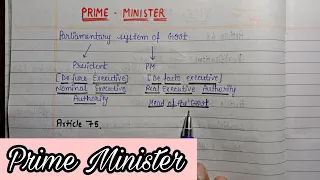 PRIME - MINISTER
Parliamentary system of Govt
President PM
[De jure Executive] [De facto executive]
Nominal Executive Real Executive Authority
Authority Head of the Govt
Article 75.
Prime Minister